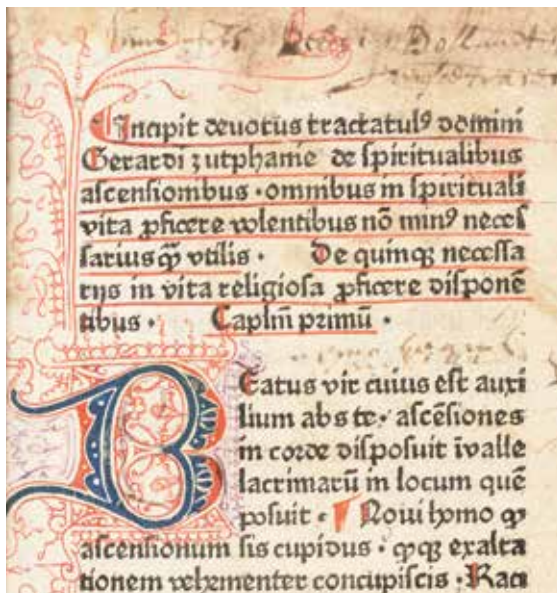 Incipit deuotus tractatulꝰ domini
Gerardi zutphanie de spiritualibus
ascensionibus · omnibus in spirituali
vita ꝓficere volentibus nō minꝰ neces
sarius ꝙ̄ vtilis · De quinqꝫ necessa
rijs in vita religiosa ꝓficere disponē
tibus · Caplm̄ primū ·
Beatus vir cuius est auxi
lium abs te · ascēsiones
in corde disposuit ī valle
lacrimarū in locum quē
posuit · Noui homo ꝙ
ascensionum sis cupidus · ꝙqꝫ exalta
tionem vehementer concupiscis · Raci